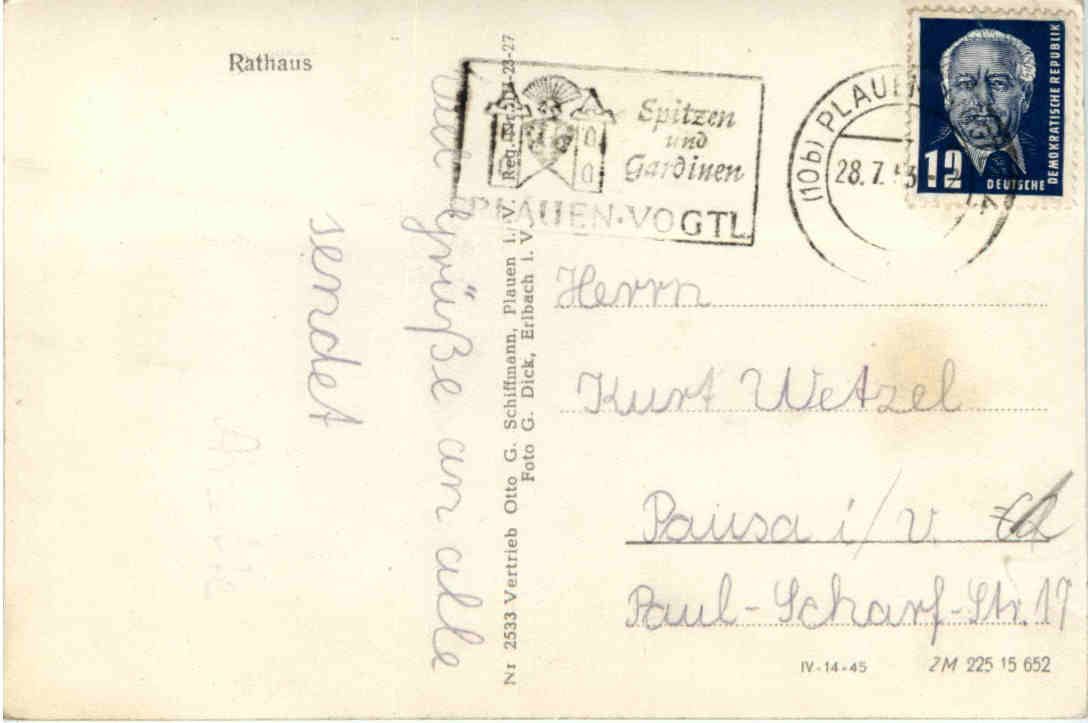 Rathaus
Viele Grüße an alle
sendet
Nr 2533 Vertrieb Otto G. Schiffmann, Plauen i. V.
Foto G. Dick, Erlbach i. V.
Spitzen
und
Gardinen
PLAUEN·VOGTL
(10b) PLAUEN
28.7.53
12
DEUTSCHE
DEMOKRATISCHE REPUBLIK
Herrn
Kurt Wetzel
Pausa i/V.
Paul-Scharf-Str. 17
IV-14-45
ZM 225 15 652